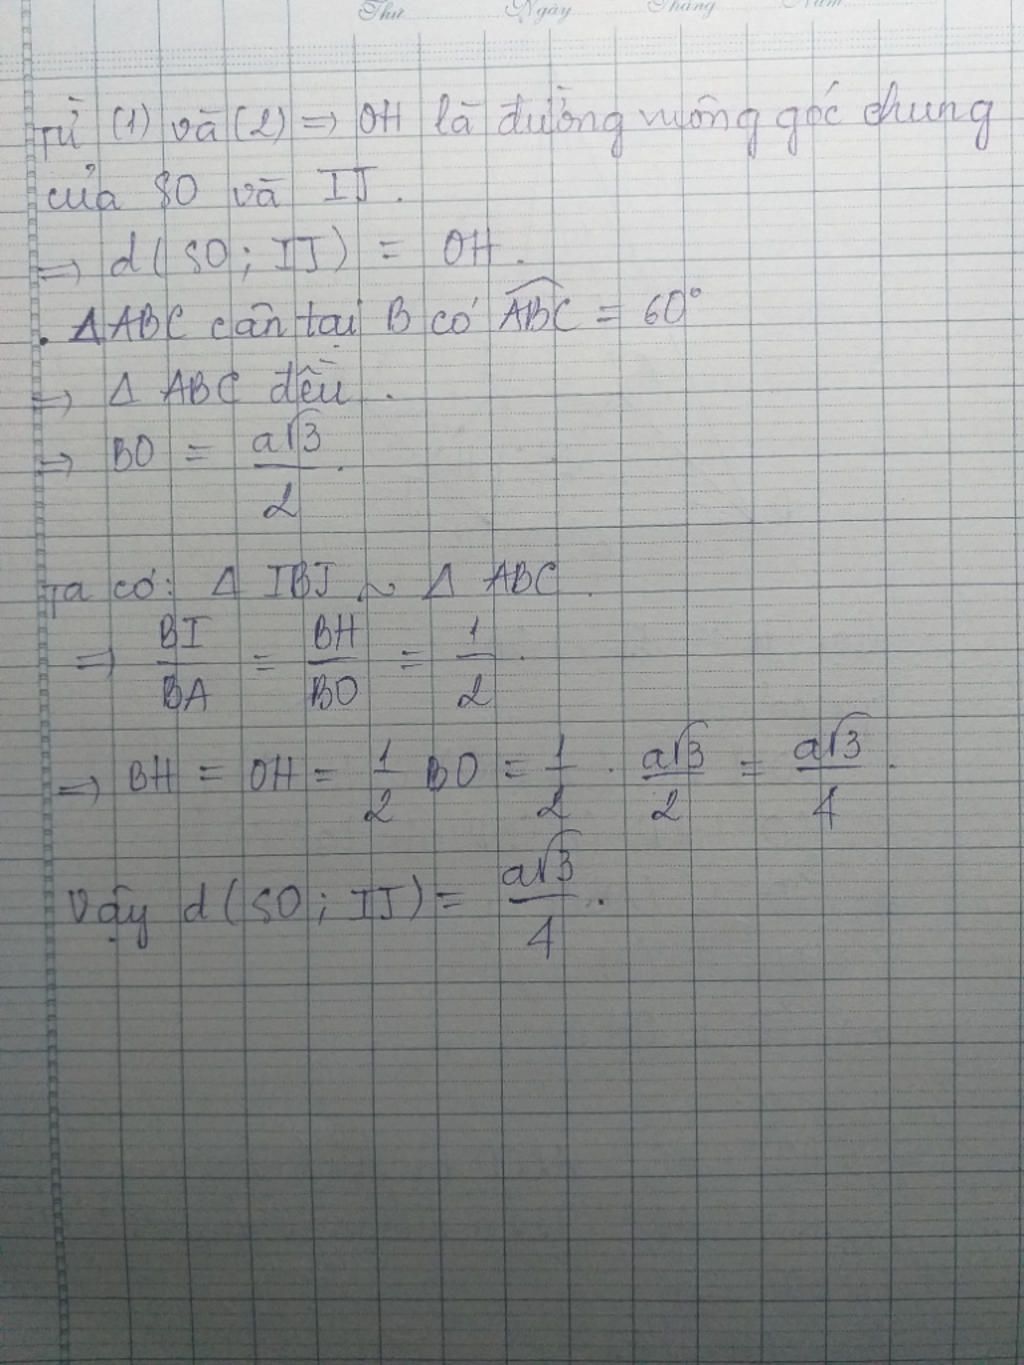 Thứ Ngày Tháng Năm
Từ (1) và (2) => OH là đường vuông góc chung
của SO và IJ.
=> d(SO; IJ) = OH.
. ΔABC cân tại B có \widehat{ABC} = 60°
=> Δ ABC đều.
=> BO = a√3/2.
Ta có: Δ IBJ ~ Δ ABC.
=> BI/BA = BH/BO = 1/2.
=> BH = OH = 1/2 BO = 1/2 . a√3/2 = a√3/4.
Vậy d(SO; IJ) = a√3/4.